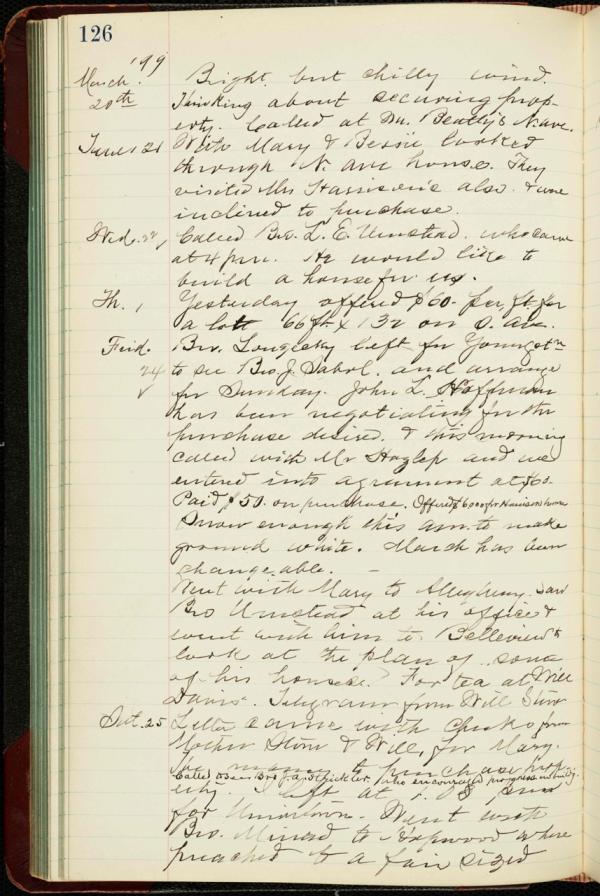 126
March '99
20th Bright but chilly wind.
Thinking about securing prop-
erty. Called at Dr. Beatty's N. ave.
Tues 21 With Mary & Bessie looked
through N. ave house. They
visited Mrs Harrison's also & we
inclined to purchase.
Wed. 22, Called Bro. L. E. Umstead. who came
at 4 p.m. He would like to
build a house for us.
Th. Yesterday offered $60- per ft. for
a lot 66 ft x 132 on S. Ave.
Frid. Bro. left for Youngstn
24 to see Bro J. Sabol. and arrange
for Sunday. John L. Hoffman
has been negotiating for the
purchase desired. & this morning
called with Mr and we
entered into agreement at $60.
Paid $50. on purchase. Offered $6000 for Harrison house
Snow enough this a.m. to make
ground white. March has been
changeable. —
Went with Mary to Allegheny. Saw
Bro Umstead at his office &
went with him to Belleview to
look at the plan of some
of his houses. For tea at Will
Davis'. Telegram from Will
Sat. 25 Letter came with checks from
Mother & Will, for Mary.
to purchase prop-
Called to see Bro J. A. who encourages
erty. I left at
for Uniontown. Went with
Bro. to Hopwood where
preached to a fair sized